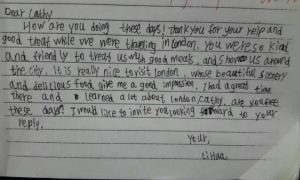 Dear Cathy
How are you doing these days! Thank you for your help and
good treat while we were traveling in London. You were so kind
and friendly to treat us with good meals, and show us around
the city. It is really nice to visit london, whose beautiful scenery
and delicious food give me a good impression. I had a good time
there and learned a lot about london, cathy. are you free
these days? I would like to invite you, looking forward to your
reply.
Your,
Li Hua